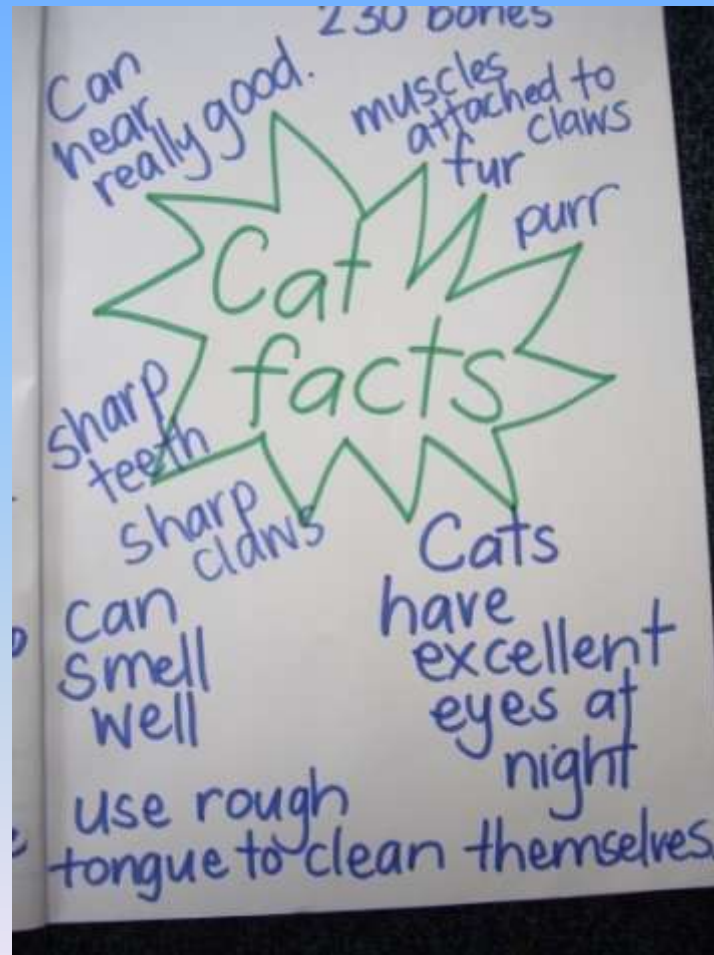 230 bones
Can
hear
really good.
muscles
attached to
claws
fur
purr
Cat
facts
sharp
teeth
sharp
claws
Cats
have
excellent
eyes at
night
can
smell
well
use rough
tongue to clean themselves.